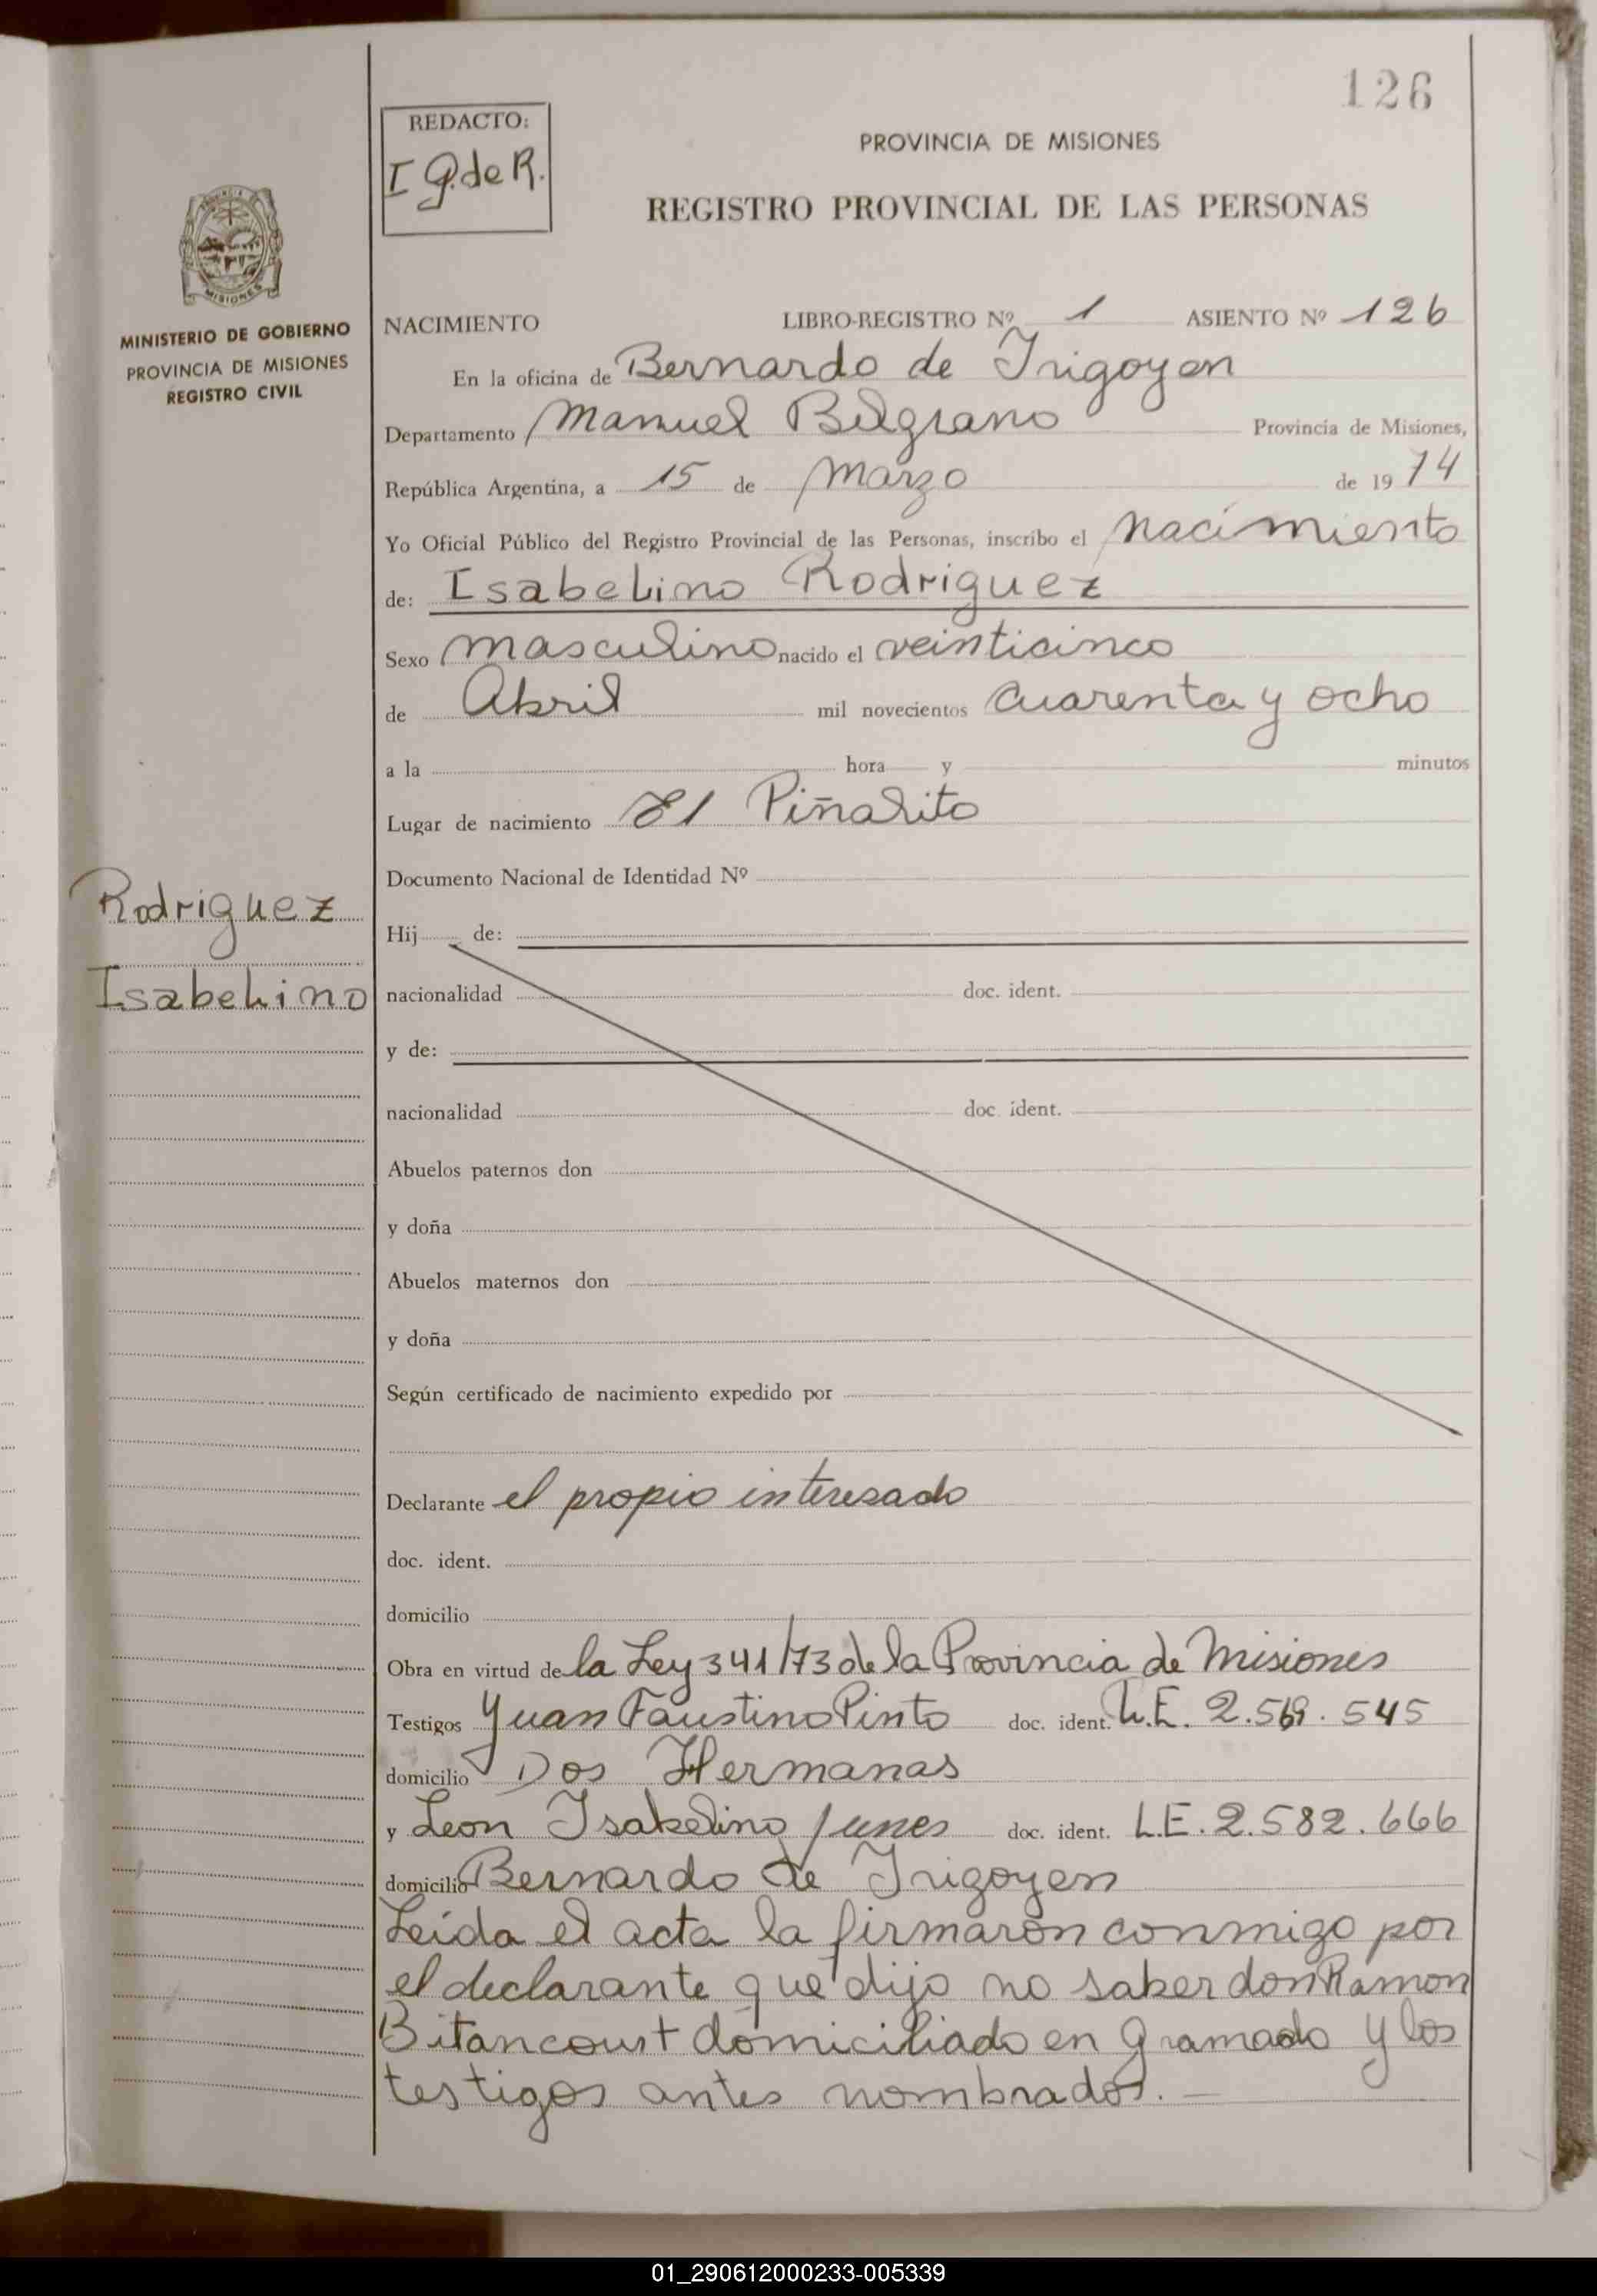 126
REDACTO:
I G. de R.
PROVINCIA DE MISIONES
REGISTRO PROVINCIAL DE LAS PERSONAS
MISIONES
MINISTERIO DE GOBIERNO
PROVINCIA DE MISIONES
REGISTRO CIVIL
NACIMIENTO LIBRO-REGISTRO Nº 1 ASIENTO Nº 126
En la oficina de Bernardo de Irigoyen
Departamento Manuel Belgrano Provincia de Misiones,
República Argentina, a 15 de Marzo de 1974
Yo Oficial Público del Registro Provincial de las Personas, inscribo el Nacimiento
de: Isabelino Rodriguez
Sexo masculino nacido el veinticinco
de Abril mil novecientos cuarenta y ocho
a la hora y minutos
Lugar de nacimiento El Piñalito
Documento Nacional de Identidad Nº
Rodriguez
Hij de:
Isabelino
nacionalidad doc. ident.
y de:
nacionalidad doc. ident.
Abuelos paternos don
y doña
Abuelos maternos don
y doña
Según certificado de nacimiento expedido por
Declarante el propio interesado
doc. ident.
domicilio
Obra en virtud de la Ley 341/73 de la Provincia de Misiones
Testigos Juan Faustino Pinto doc. ident. L.E. 2.569.545
domicilio Dos Hermanas
y Leon Isabelino doc. ident. L.E. 2.582.666
domicilio Bernardo de Irigoyen
Leída el acta la firmaron conmigo por
el declarante que dijo no saber don Ramon
Bitancourt domiciliado en gramado y los
testigos antes nombrados. —
01_290612000233-005339